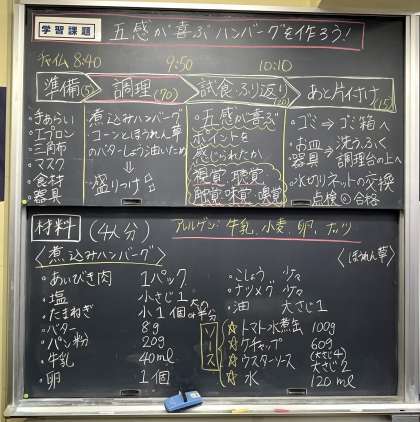 学習課題 五感が喜ぶハンバーグを作ろう!
チャイム 8:40 9:50 10:10
準備(5) 調理(70) 試食・ふり返り(20) あと片付け(15)
・手あらい
・エプロン
・三角布
・マスク
・食材
・器具
煮込みハンバーグ
コーンとほうれん草
のバターしょう油いため
⇓
盛りつけ
・五感が喜ぶ
ポイントを
感じられたか
視覚・聴覚・
触覚・味覚・嗅覚
・ゴミ ⇒ ゴミ箱へ
・お皿 ⇒ 洗う、ふく
器具 ⇒ 調理台の上へ
・水切りネットの交換
点検 合格
材料 (4人分) アレルゲン: 牛乳、小麦、卵、ナッツ
〈煮込みハンバーグ〉 〈ほうれん草〉
・あいびき肉 1パック
・塩 小さじ1
・たまねぎ 小1個 大の半分
・バター 8g
・パン粉 20g
・牛乳 40ml
・卵 1個
・こしょう 少々
・ナツメグ 少々
・油 大さじ1
ソース
☆トマト水煮缶 100g
☆ケチャップ 60g
(大さじ4)
☆ウスターソース 大さじ2
☆水 120ml